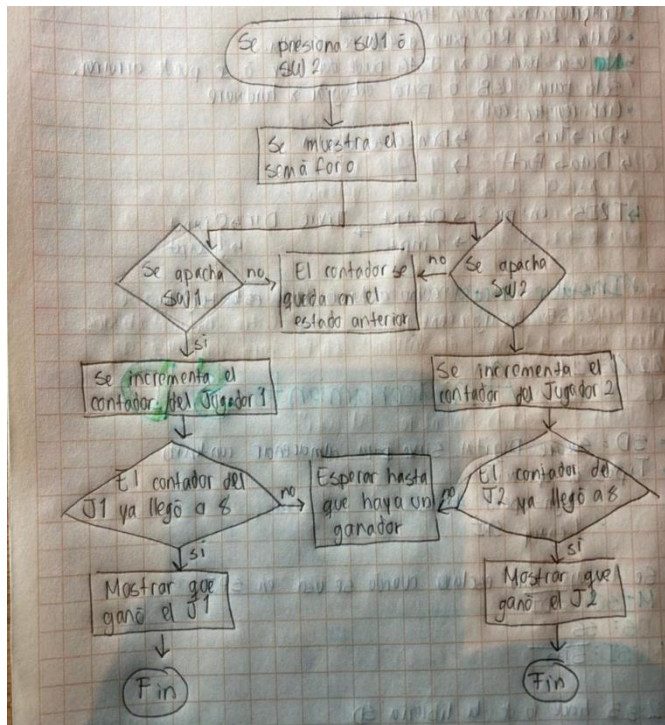 Se presiona SW1 ó
SW2
Se muestra el
semáforo
Se apacha
SW1
no
El contador se
queda en el
estado anterior
no
Se apacha
SW2
si
si
Se incrementa el
contador del Jugador 1
Se incrementa el
contador del Jugador 2
El contador del
J1 ya llegó a 8
no
Esperar hasta
que haya un
ganador
no
El contador del
J2 ya llegó a 8
si
si
Mostrar que
ganó el J1
Mostrar que
ganó el J2
Fin
Fin